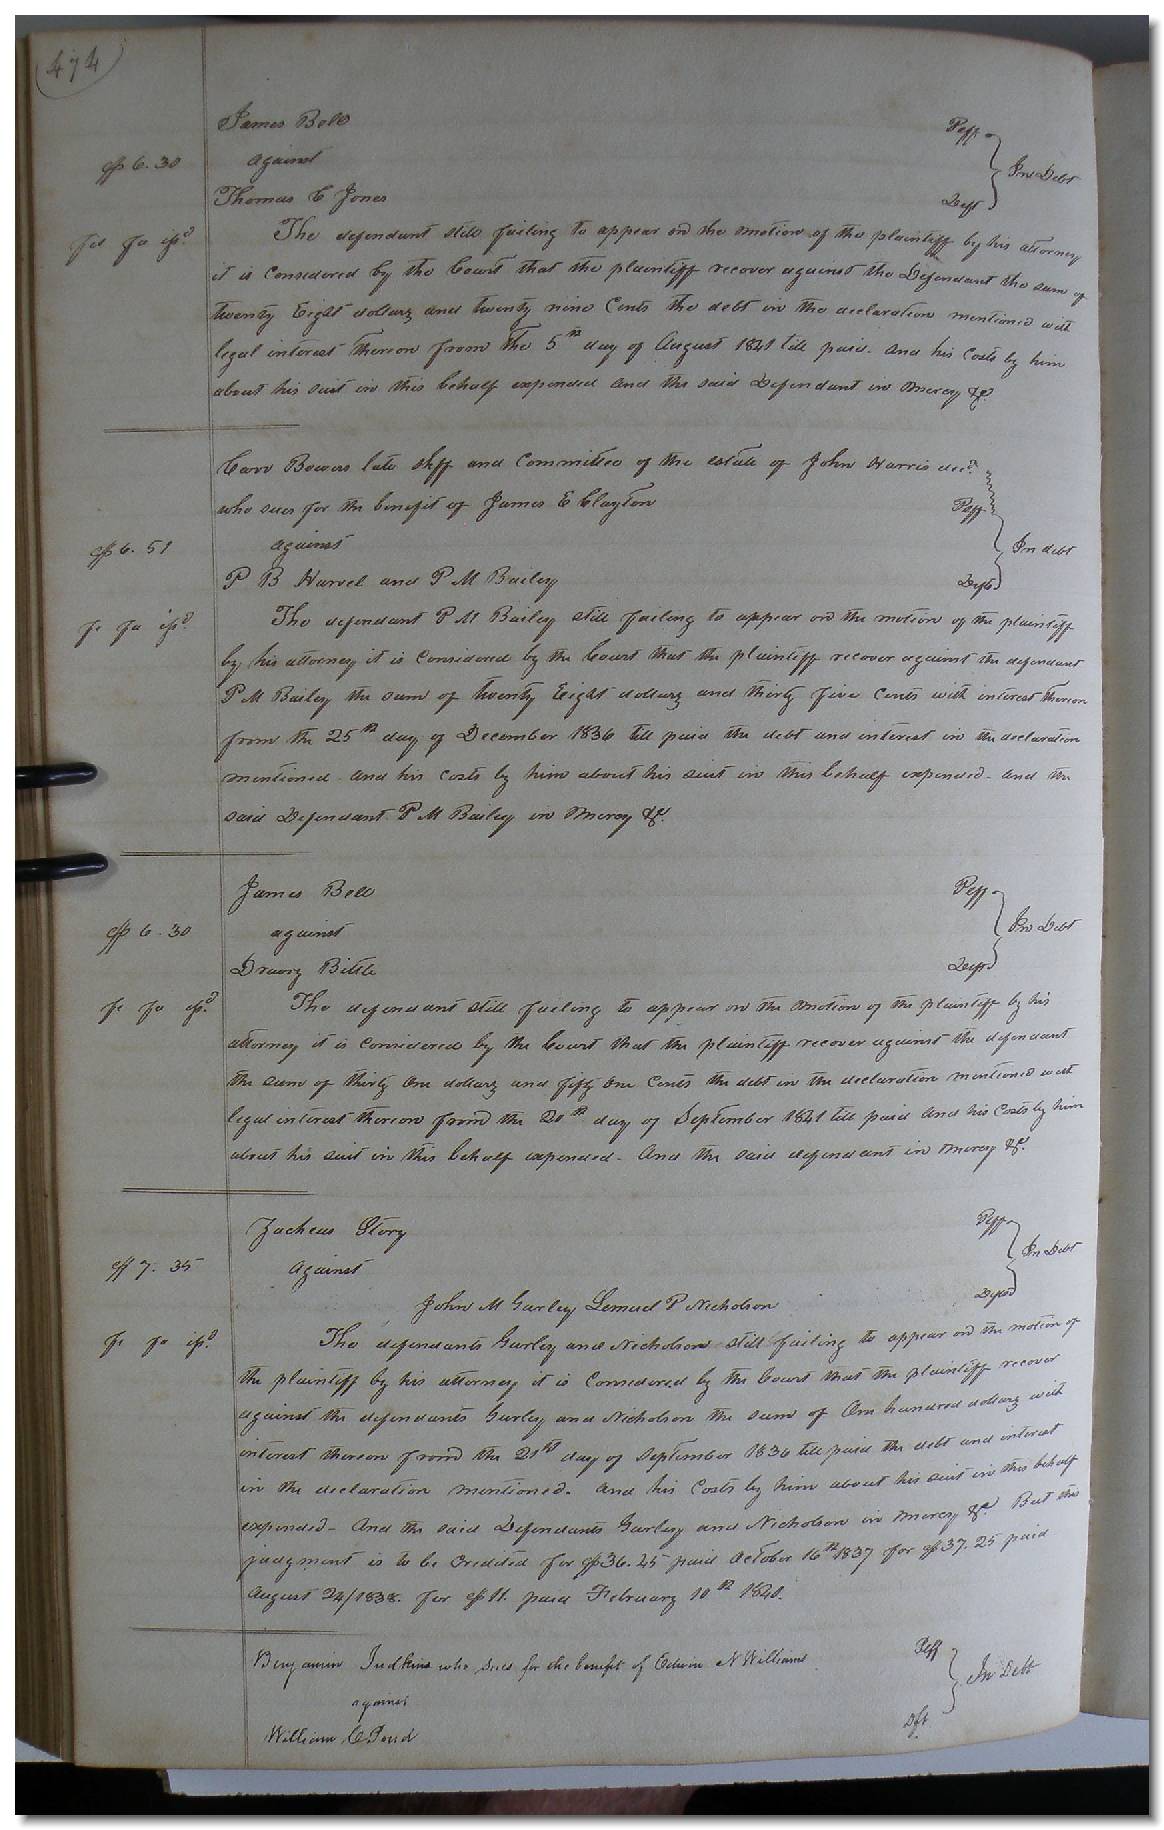 474
James Bell Plff
$6.30 against In Debt
Thomas C Jones Deft
fi fa issd The defendant still failing to appear on the motion of the plaintiff by his attorney
it is Considered by the Court that the plaintiff recover against the Defendant the sum of
twenty Eight dollars and twenty nine Cents the debt in the declaration mentioned with
legal interest thereon from the 5th day of August 1841 till paid. and his Costs by him
about his suit in this behalf expended and the said Defendant in mercy &c.
Carr Bowers late shff and Committee of the estate of John Harris decd.
who sues for the benefit of James E Clayton Plff
$6.51 against In debt
P B Harvel and P M Bailey Defts
fi fa issd. The defendant P M Bailey still failing to appear on the motion of the plaintiff
by his attorney it is Considered by the Court that the plaintiff recover against the defendant
P M Bailey the sum of twenty Eight dollars and thirty five Cents with interest thereon
from the 25th day of December 1836 till paid the debt and interest in the declaration
mentioned and his Costs by him about his suit in this behalf expended - and the
said Defendant P M Bailey in mercy &c.
James Bell Plff
$6.30 against In Debt
Drewry Bittle Deft
fi fa issd. The defendant still failing to appear on the motion of the plaintiff by his
attorney it is Considered by the Court that the plaintiff recover against the defendant
the sum of thirty one dollars and fifty one Cents the debt in the declaration mentioned with
legal interest thereon from the 20th day of September 1841 till paid and his Costs by him
about his suit in this behalf expended - And the said defendant in mercy &c.
Zacheus Story Plff
$7.35 against In Debt
John M Gurley Lemuel P Nicholson Defts
fi fa issd. The defendants Gurley and Nicholson still failing to appear on the motion of
the plaintiff by his attorney it is Considered by the Court that the plaintiff recover
against the defendants Gurley and Nicholson the sum of One hundred dollars with
interest thereon from the 21st day of September 1836 till paid the debt and interest
in the declaration mentioned. and his Costs by him about his suit in this behalf
expended - And the said Defendants Gurley and Nicholson in mercy &c. But this
judgment is to be Credited for $36.45 paid October 16th 1837 for $37.25 paid
August 24/1838. for $11. paid February 10th 1840.
Benjamin Judkins who sues for the benefit of Edwin N Williams Plff
against In Debt
William C Pond Dft